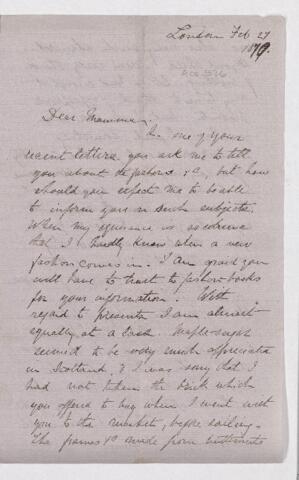 London Feb 27
1879.
Dear Mamma,
In one of your
recent letters you ask me to tell
you about the fashions &c, but how
should you expect me to be able
to inform you on such subjects.
When my ignorance is so extreme
that I hardly know when a new
fashion comes in. I am afraid you
will have to trust to fashion books
for your information! With
regard to presents I am almost
equally at a loss. Maple sugar
seemed to be very much appreciated
in Scotland, & I was sorry that I
had not taken the brick which
you offered to buy when I went with
you to the market, before sailing.
The frames &c made from butternuts